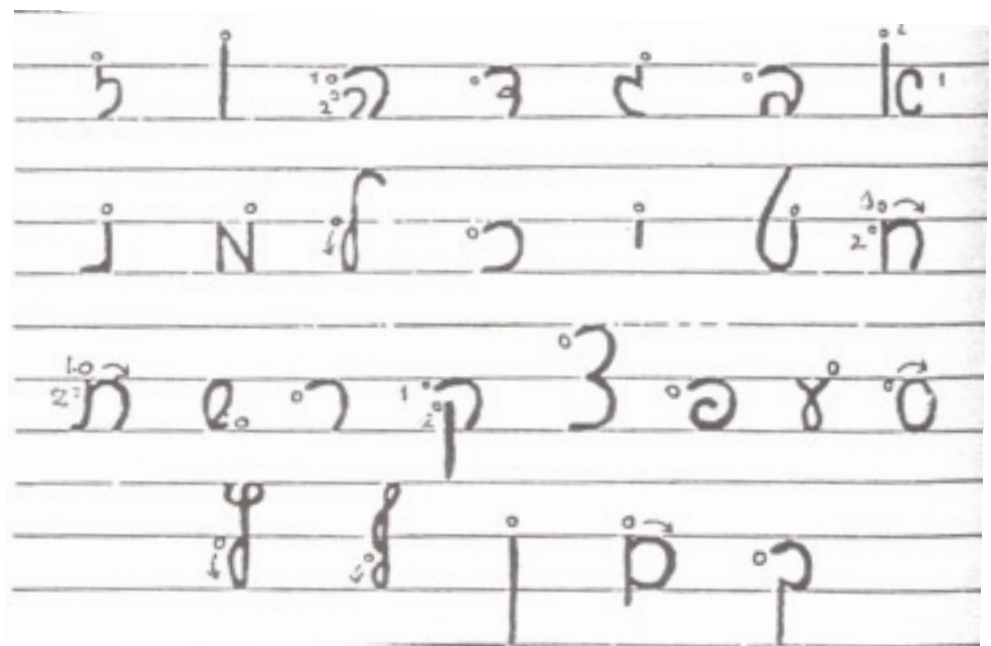 א ב ג ד ה ו ז
ח ט י כ ל מ נ
ס ע פ צ ק ר ש ת
ך ם ן ף ץ